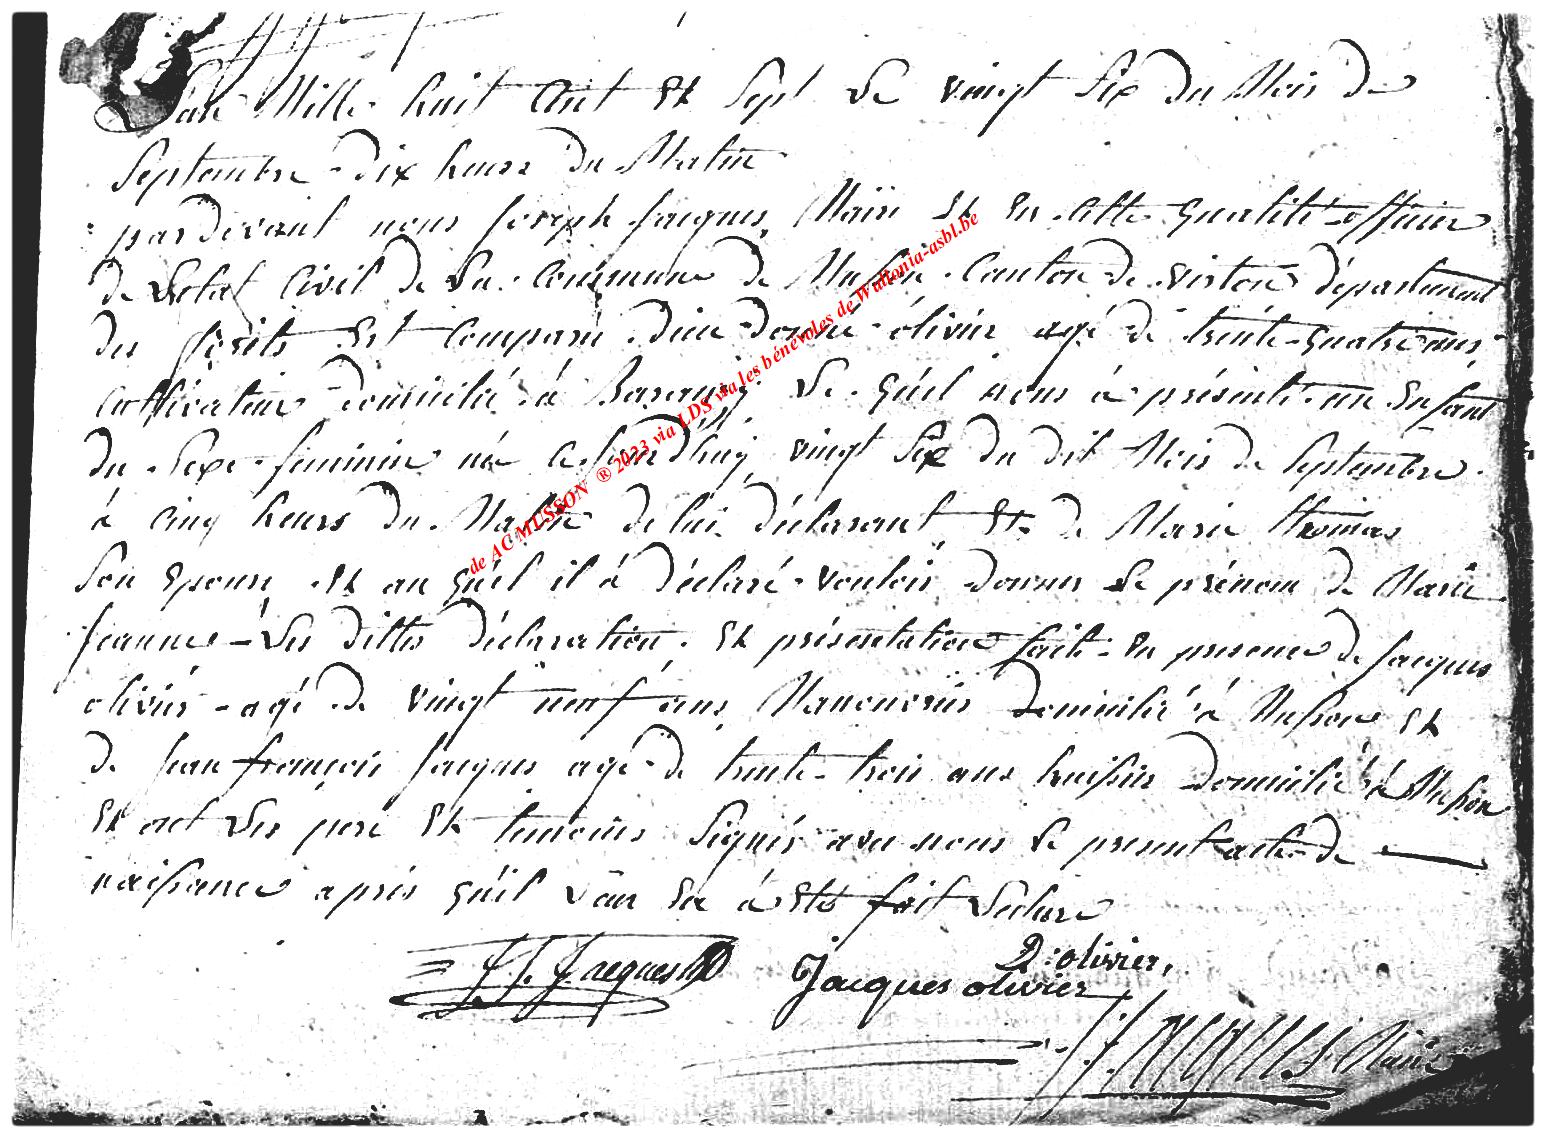 L'an Mille huit Cent Et Sept Le vingt Six Du Mois De
Septembre Dix heures Du Matin
pardevant nous Joseph Jacques, Maire Et En Cette qualité officier
De L'etat Civil De La Commune De Musson Canton De virton département
Des forêts Est Comparu dieu-Donné olivier agé De trente-quatre ans
Cultivateur Domicilié à Baranzy Le qu'el nous à présenté un Enfant
Du Sexe feminin née Cejourd'huy vingt Six Du dit Mois De Septembre
à Cinq heures Du Matin De lui Déclarant Et De Marie thomas
Son Epouse Et au qu'el il à Déclaré vouloir Donner Le prénom De Marie
Jeanne Les dittes Déclaration Et présentation faite En presence De Jacques
olivier agé De vingt neuf ans Manouvrier Domicilié à Musson Et
De Jean françois Jacques agé De trente trois ans huissier Domicilié à Musson
Et ont Les pere Et temoins Signés avec nous Le present acte De
naissance après qu'il Leur En à Eté fait Lecture
J. f. Jacques
D: olivier,
Jacques olivier
J. Jacques Maire
de AC MUSSON ® 2023 via LDS via les bénévoles de Wallonia-asbl.be